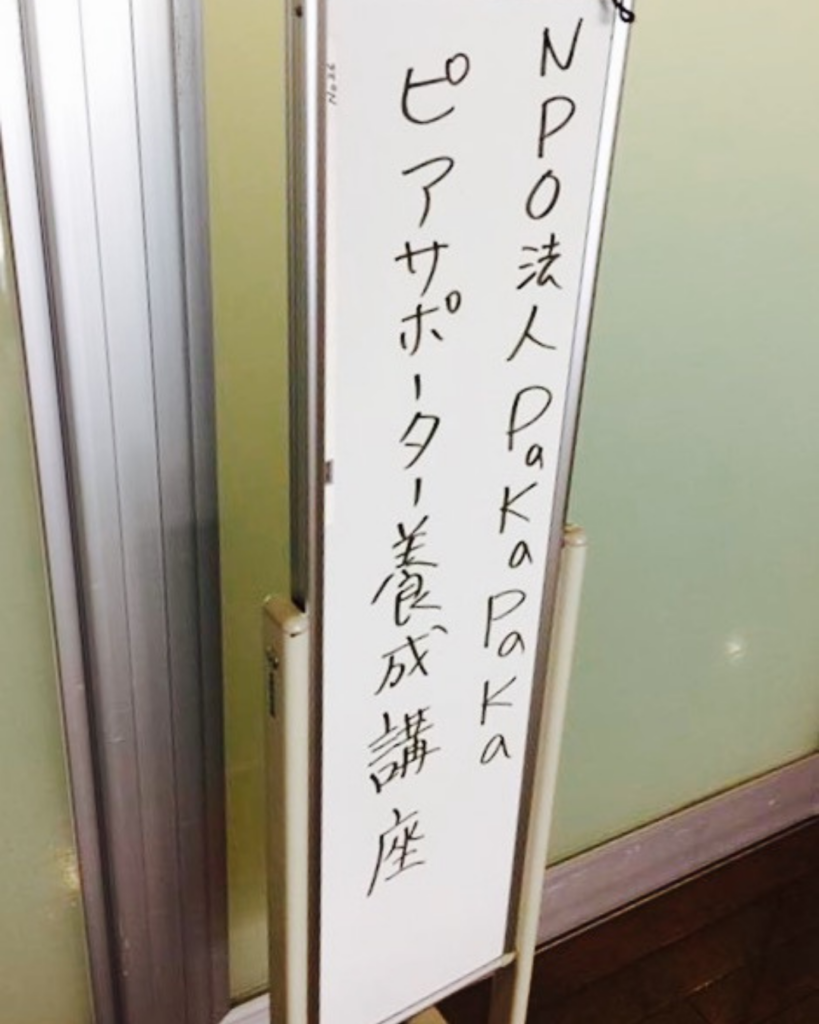 NPO法人PaKaPaKa
ピアサポーター養成講座
No.26